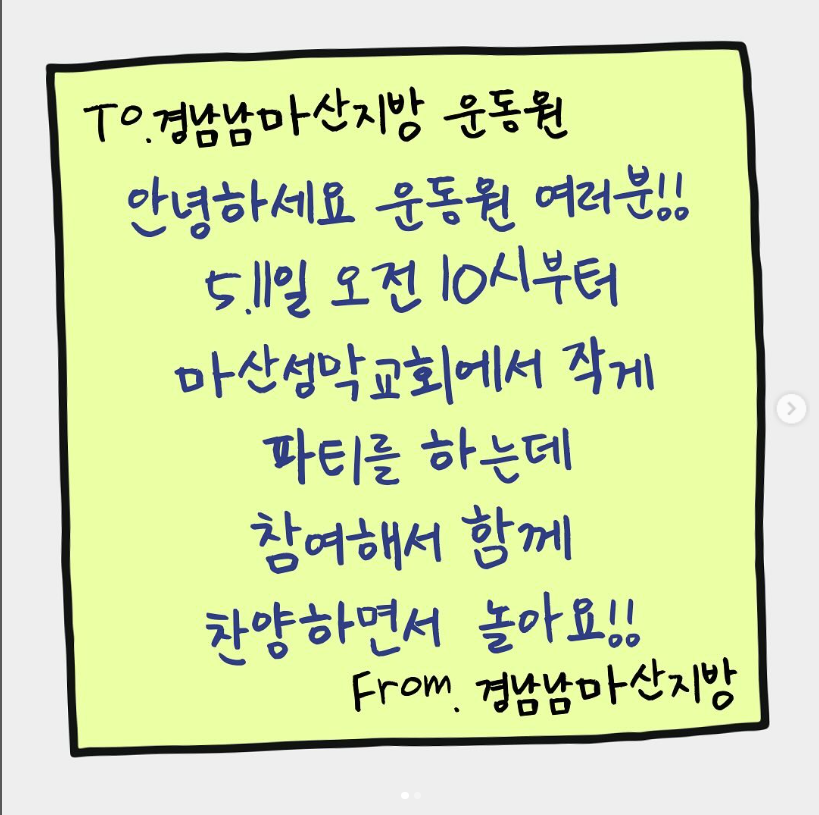 To. 경남남마산지방 운동원
안녕하세요 운동원 여러분!!
5.11일 오전 10시부터
마산성막교회에서 작게
파티를 하는데
참여해서 함께
찬양하면서 놀아요!!
From. 경남남마산지방